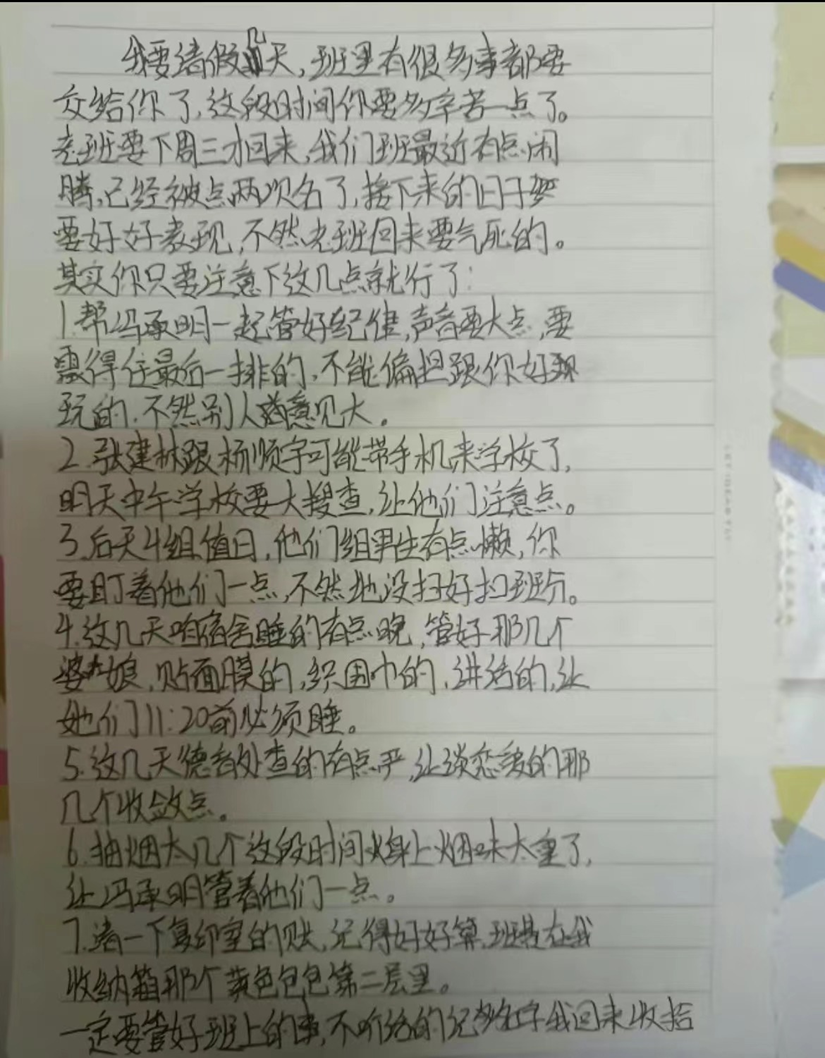 我要请假几天，班里有很多事都要
交给你了，这段时间你要多辛苦一点了。
老班要下周三才回来，我们班最近有点闹
腾，已经被点两次名了，接下来的日子
要好好表现，不然老班回来要气死的。
其实你只要注意下这几点就行了：
1.帮冯承明一起管好纪律，声音要大点，要
震得住最后一排的，不能偏袒跟你好
玩的，不然别人意见大。
2.张建林跟杨顺宇可能带手机来学校了，
明天中午学校要大搜查，让他们注意点。
3.后天4组值日，他们组男生有点懒，你
要盯着他们一点，不然地没扫好扣班分。
4.这几天咱宿舍睡的有点晚，管好那几个
婆娘，贴面膜的，织围巾的，讲话的，让
她们11:20前必须睡。
5.这几天德育处查的有点严，让谈恋爱的那
几个收敛点。
6.抽烟那几个这段时间身上烟味太重了，
让冯承明管着他们一点。
7.清一下复印室的账，记得好好算，班费在我
收纳箱那个黄色包包第二层里。
一定要管好班上的事，不听话的记名字我回来收拾